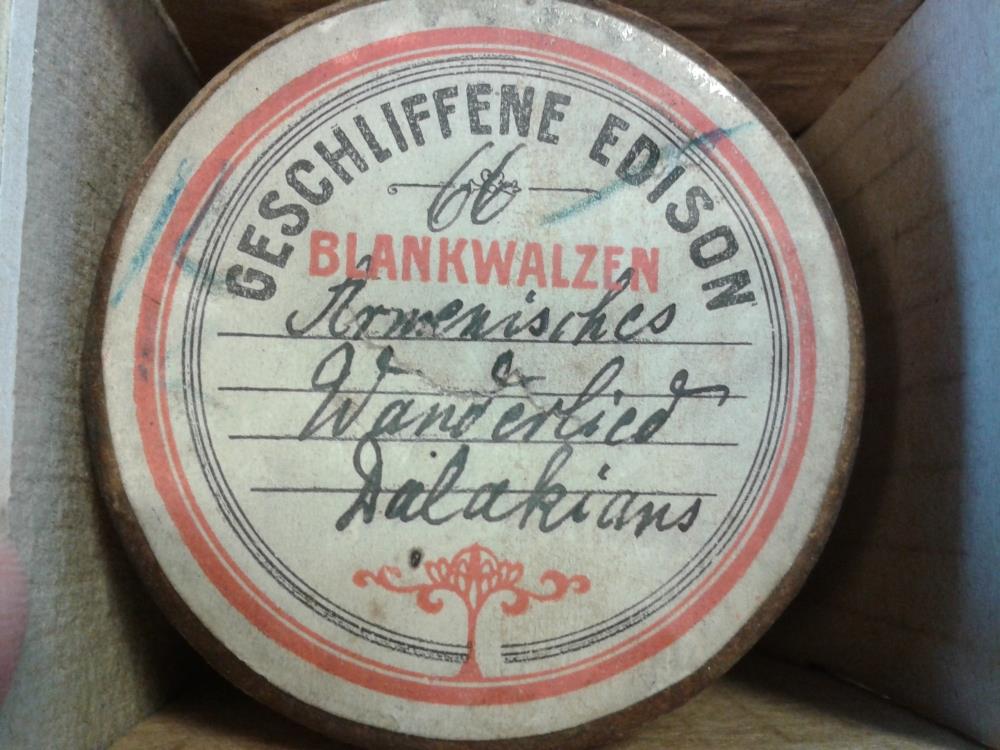 GESCHLIFFENE EDISON
66
BLANKWALZEN
Armenisches
Wanderlied
Dalakians